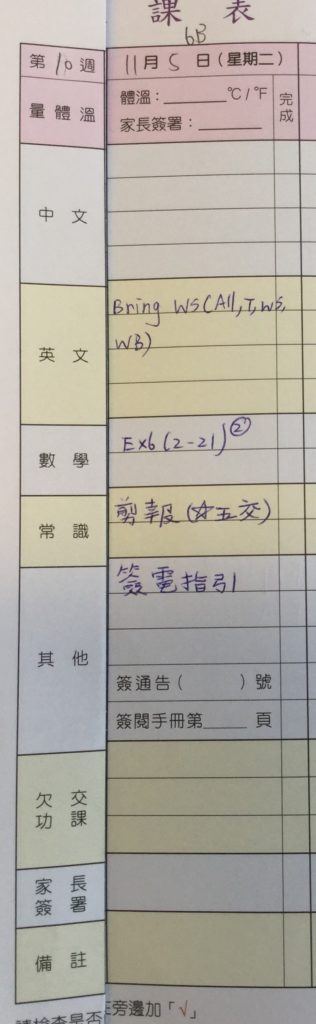 課 表
6B
第10週 11月5日(星期二)
量體溫
體溫:______°C/°F
家長簽署:______
完成
中文
英文
Bring WS(A11,T,WS,
WB)
數學
Ex6(2-21)②
常識
剪報(☆五交)
其他
簽電指引
簽通告( )號
簽閱手冊第____頁
欠交
功課
家長
簽署
備註
旁邊加「√」